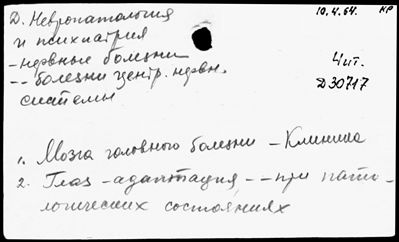 Д. Невропатология
10.4.64. КР
и психиатрия
- нервные болезни
-- болезни центр. нервн.
системы
Чит.
Д30717
1. Мозга головного болезни - Клиника
2. Глаз - адаптация -- при пато-
логических состояниях